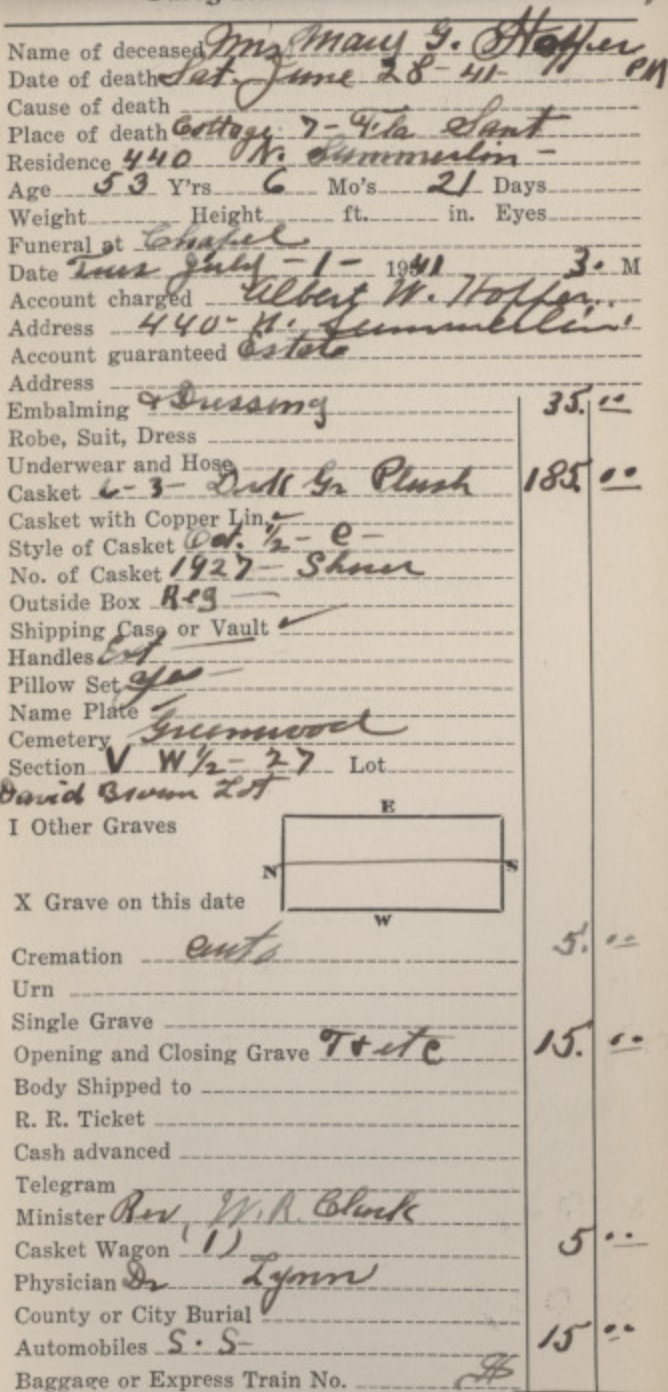 Name of deceased Mrs Mary G. Hoffer
Date of death Sat. June 28-41 PM
Cause of death
Place of death Cottage 7- Fla Sant
Residence 440 N. Summerlin-
Age 53 Y'rs 6 Mo's 21 Days
Weight Height ft. in. Eyes
Funeral at Chapel
Date Tues July -1- 1941 3. M
Account charged Albert W. Hoffer..
Address 440- N. Summerlin.
Account guaranteed Estate
Address
Embalming & Dressing 35. 00
Robe, Suit, Dress
Underwear and Hose
Casket 6-3- Gr Plush 185. 00
Casket with Copper Lin.
Style of Casket Oct. 1/2- C-
No. of Casket 1927-
Outside Box Reg
Shipping Case or Vault ✓
Handles Ext
Pillow Set yes
Name Plate ✓
Cemetery Greenwood
Section V W 1/2- 27 Lot
David Brown Lot
I Other Graves
E
N S
X Grave on this date
W
Cremation 5. 00
Urn
Single Grave
Opening and Closing Grave T & etc 15. 00
Body Shipped to
R. R. Ticket
Cash advanced
Telegram
Minister Rev, W. R. Clark
Casket Wagon (1) 5 00
Physician Dr Lynn
County or City Burial
Automobiles S. S- 15 00
Baggage or Express Train No.